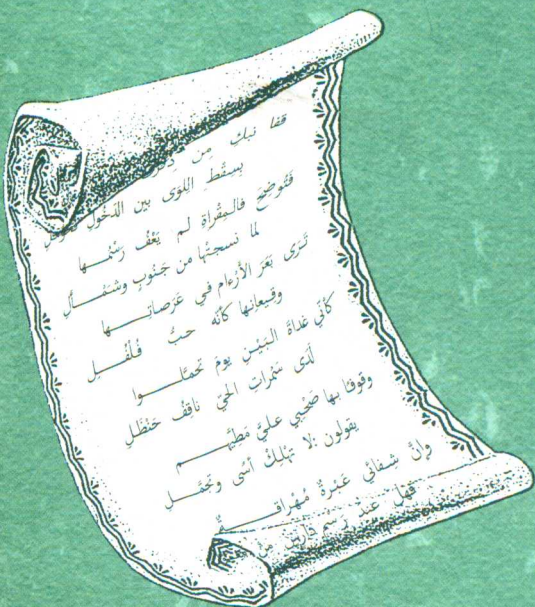 قفا نبك من
بسقط اللوى بين الدخول
فتوضح فالمقراة لم يعف رسمها
لما نسجتها من جنوب وشمأل
ترى بعر الأرءام في عرصاتها
وقيعانها كأنه حب فلفل
كأني غداة البين يوم تحملوا
لدى سمرات الحي ناقف حنظل
وقوفا بها صحبي علي مطيهم
يقولون: لا تهلك أسى وتجمل
وإن شفائي عبرة مهراقة
فهل عند رسم دارس من